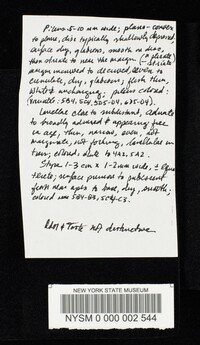 Pileus 5-10 mm wide; plano-convex
to plane, disc typically shallowly depressed,
surface dry, glabrous, smooth on disc,
then striate to near the margin
margin incurved to decurved, even to
crenulate, dry, glabrous; flesh thin,
white & unchanging; pileus colored:
Lamellae close to subdistant, adnate
to broadly adnexed & appearing free
in age, thin, narrow, even, not
marginate, not forking, lamellulae in
tiers; colored, white to 4A2, 5A2.
Stipe 1-3 cm x 1-2 mm wide, ± equal
terete; surface pruinose to pubescent
from near apex to base, dry, smooth;
colored
Odor & Taste not distinctive
NEW YORK STATE MUSEUM
NYSM 0 000 002 544